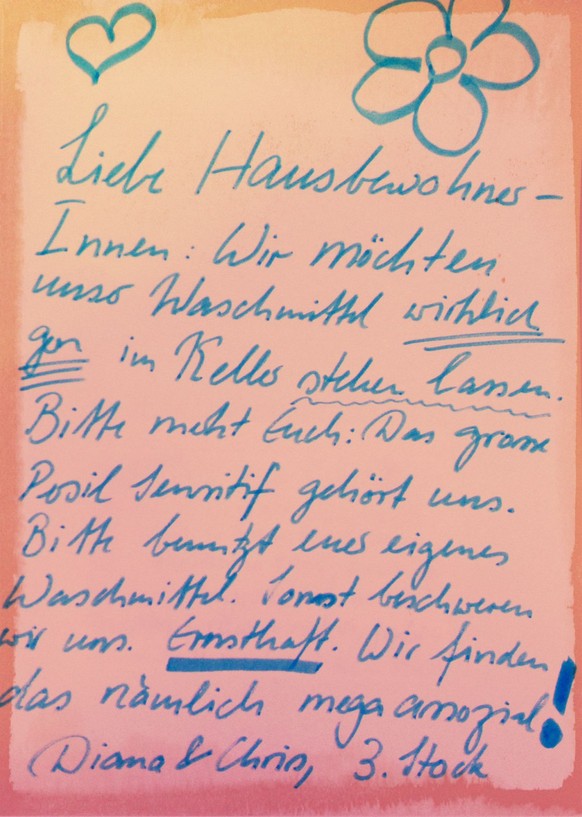 Liebe Hausbewohner-
Innen: Wir möchten
unser Waschmittel wirklich
gern im Keller stehen lassen.
Bitte merkt Euch: Das grosse
Persil Sensitif gehört uns.
Bitte benutzt euer eigenes
Waschmittel. Sonst beschweren
wir uns. Ernsthaft. Wir finden
das nämlich mega assozial!
Diana & Chris, 3. Stock